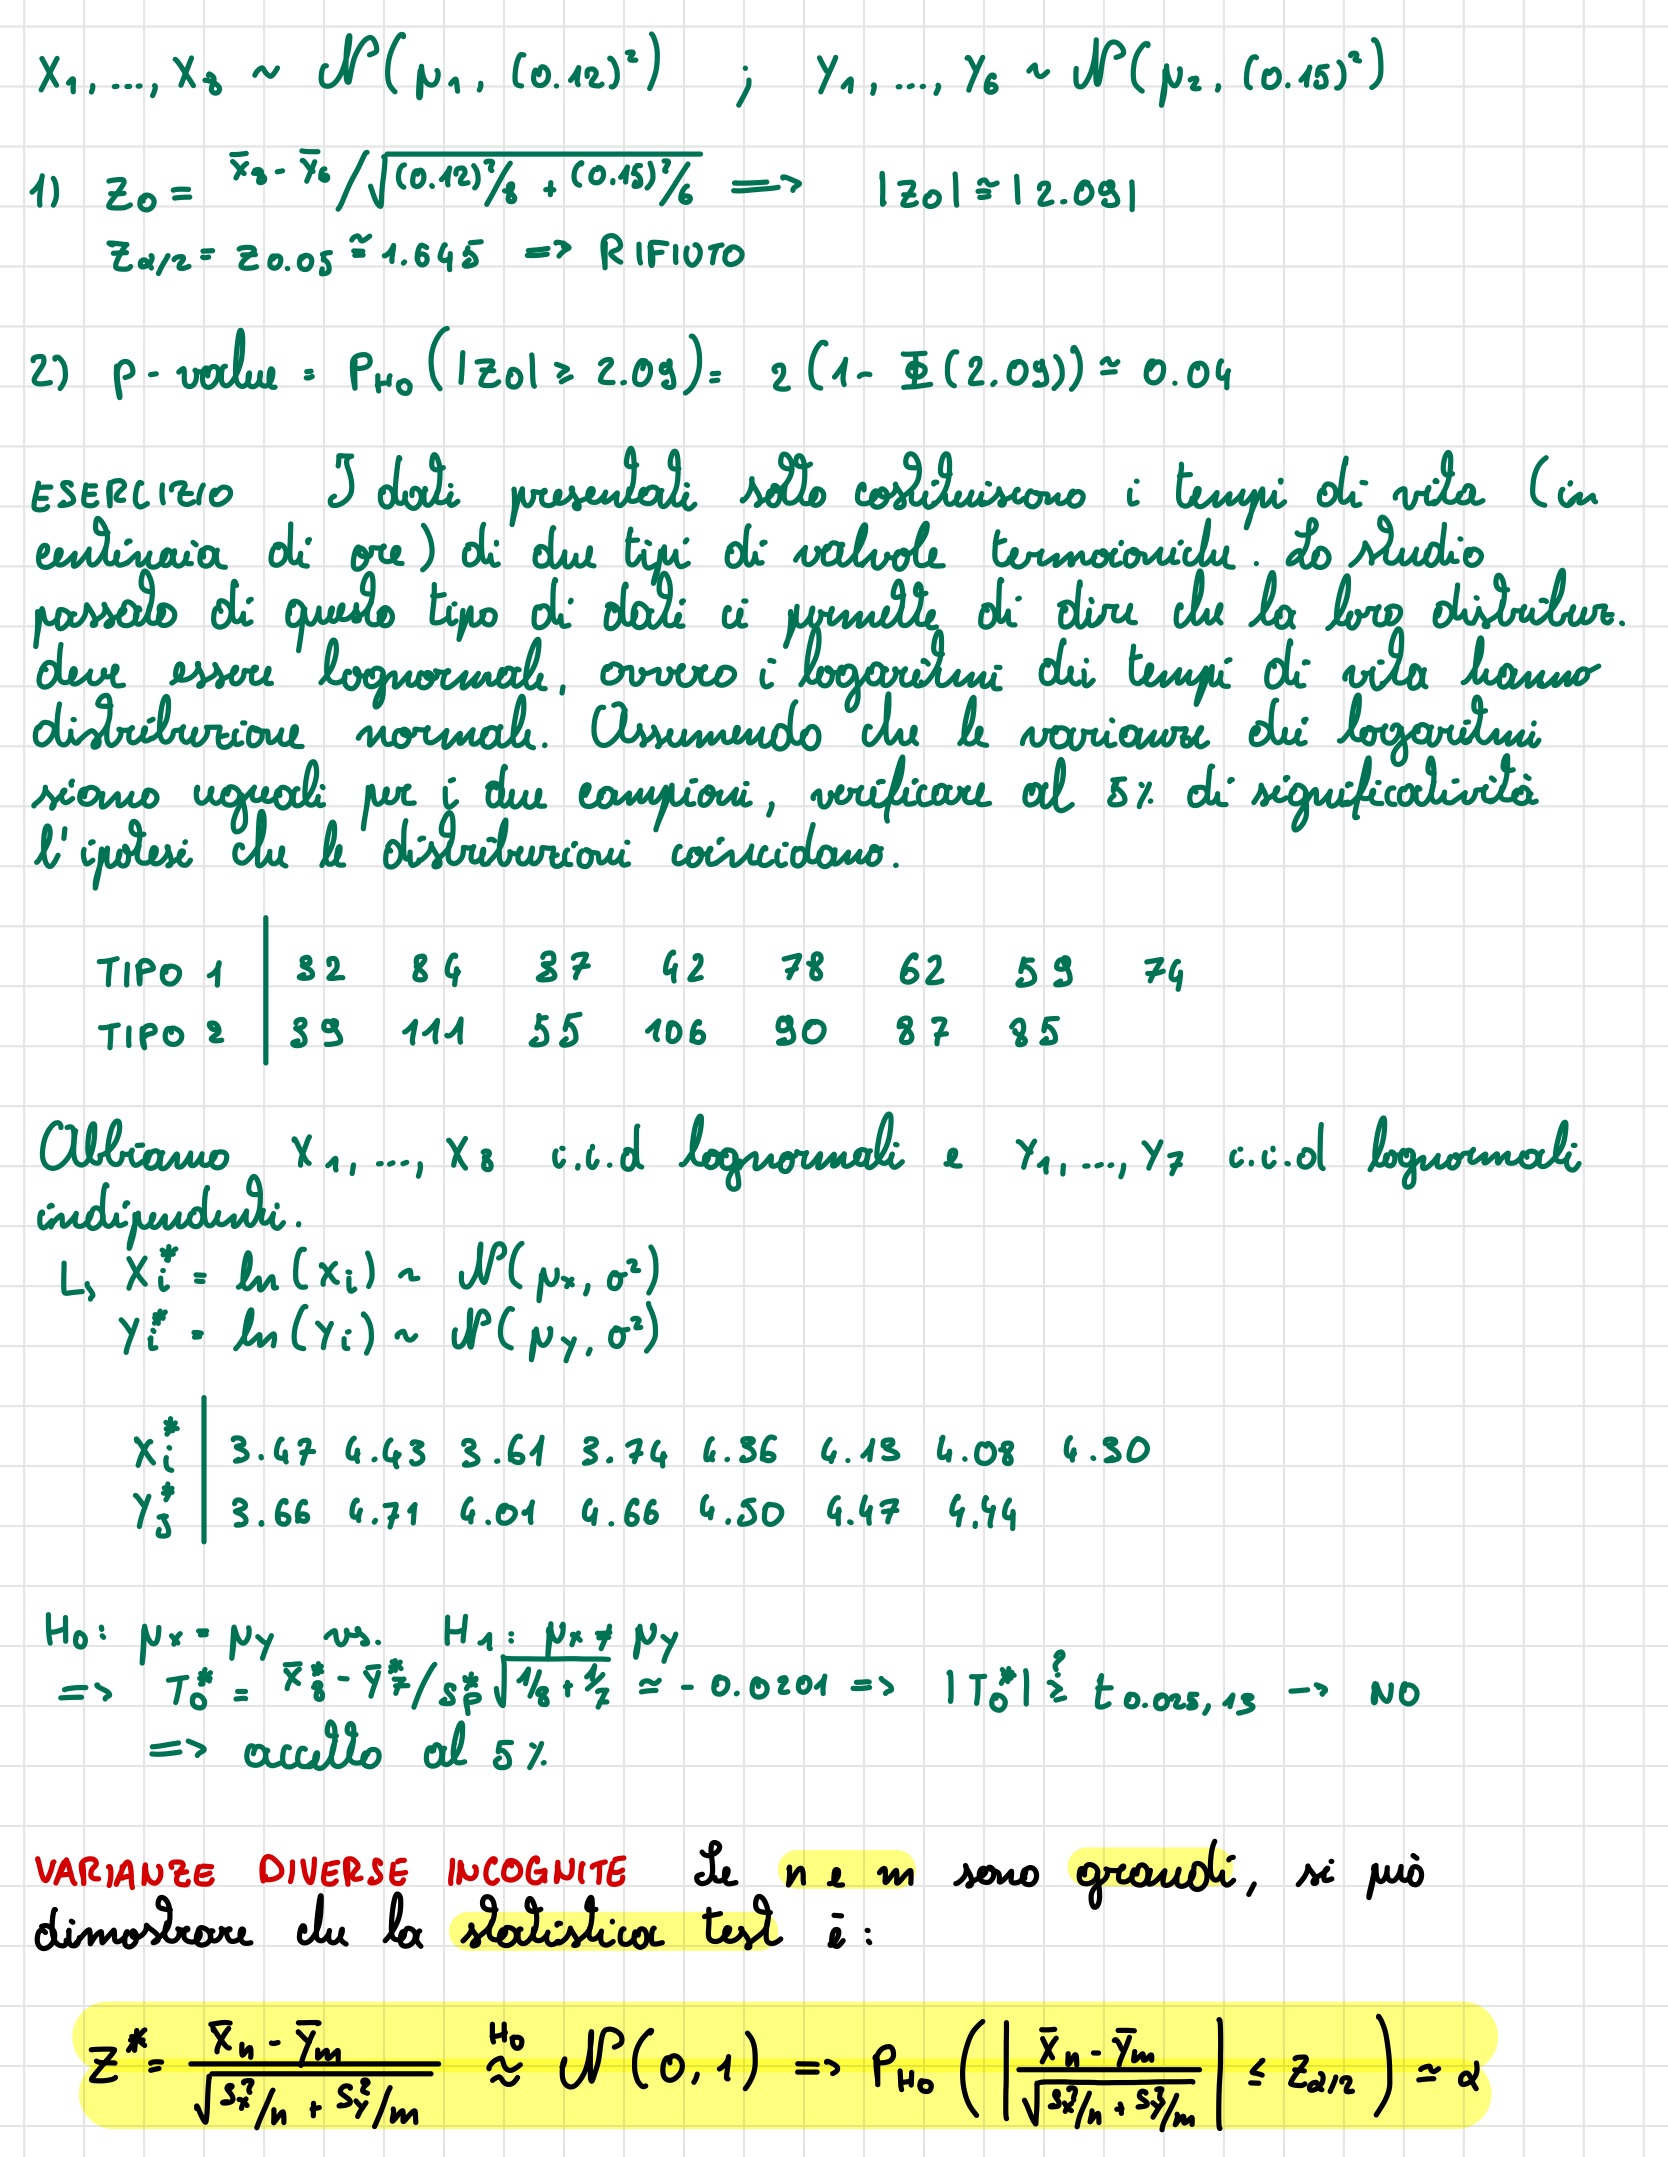 X₁, ..., X₈ ~ N(μ₁, (0.12)²) ; Y₁, ..., Y₆ ~ N(μ₂, (0.15)²)
1) Z₀ = X̄₈ - Ȳ₆ / √((0.12)²/8 + (0.15)²/6) ⟹ |Z₀| ≅ |2.09|
Zα/₂ = Z₀.₀₅ ≅ 1.645 => RIFIUTO
2) p-value = P_H₀(|Z₀| ≥ 2.09) = 2(1 - Φ(2.09)) ≃ 0.04
ESERCIZIO I dati presentati sotto costituiscono i tempi di vita (in
centinaia di ore) di due tipi di valvole termoioniche. Lo studio
passato di questo tipo di dati ci permette di dire che la loro distribuz.
deve essere lognormale, ovvero i logaritmi dei tempi di vita hanno
distribuzione normale. Assumendo che le varianze dei logaritmi
siano uguali per i due campioni, verificare al 5% di significatività
l'ipotesi che le distribuzioni coincidano.
TIPO 1 | 32 84 37 42 78 62 59 74
TIPO 2 | 39 111 55 106 90 87 85
Abbiamo X₁, ..., X₈ i.i.d lognormali e Y₁, ..., Y₇ i.i.d lognormali
indipendenti.
↳ Xᵢ* = ln(Xᵢ) ~ N(μₓ, σ²)
Yᵢ* = ln(Yᵢ) ~ N(μ_Y, σ²)
Xᵢ* | 3.47 4.43 3.61 3.74 4.36 4.13 4.08 4.30
Yⱼ* | 3.66 4.71 4.01 4.66 4.50 4.47 4.44
H₀: μₓ = μ_Y vs. H₁: μₓ ≠ μ_Y
=> T₀* = X̄₈* - Ȳ₇* / Sₚ* √(1/8 + 1/7) ≃ -0.0201 => |T₀*| ≥? t₀.₀₂₅,₁₃ -> NO
=> accetto al 5%
VARIANZE DIVERSE INCOGNITE Se n e m sono grandi, si può
dimostrare che la statistica test è:
Z* = (X̄ₙ - Ȳₘ) / √(Sₓ²/n + S_Y²/m) ≈^H₀ N(0,1) => P_H₀(|(X̄ₙ - Ȳₘ) / √(Sₓ²/n + S_Y²/m)| ≤ Zα/₂) ≃ α